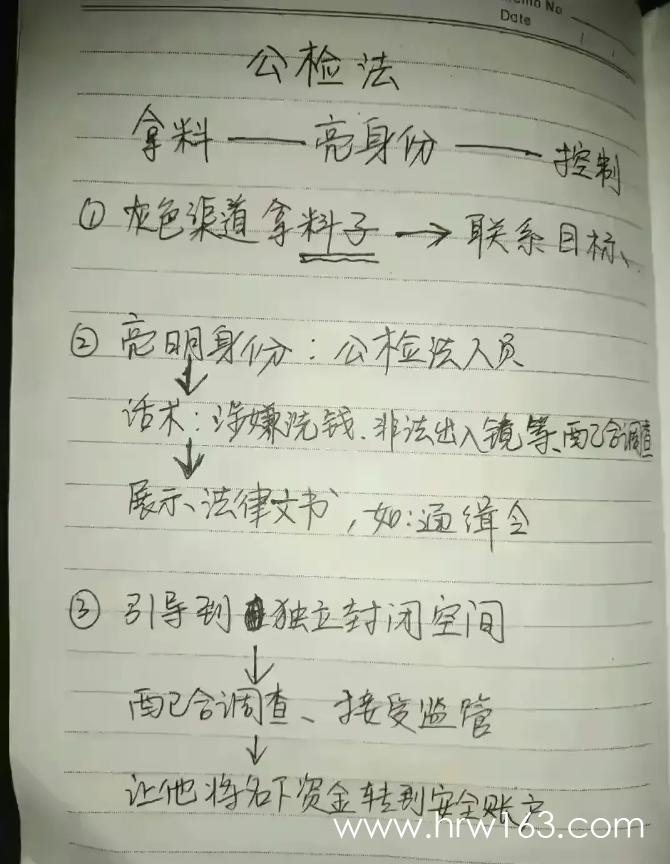 Memo No
Date / /
公检法
拿料 —— 亮身份 —— 控制
① 灰色渠道拿料子 → 联系目标、
② 亮明身份：公检法人员
↓
话术：涉嫌洗钱、非法出入镜等、配合调查
↓
展示法律文书，如：通缉令
③ 引导到独立封闭空间
↓
配合调查、接受监管
↓
让他将名下资金转到安全账户
www.hrw163.com